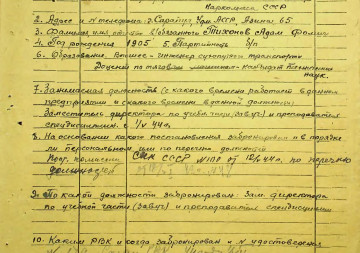 Наркомхоза СССР
2. Адрес и N телефона: г. Сарапул, Удм. АССР, Азина 65
3. Фамилия имя отч. Тихонов Адам Фомич
4. Год рождения 1905 5. Партийность б/п
6. Образование Высшее - инженер сухопутн. транспорта
Доцент по тяговым машинам - кандидат технических
наук.
7. Занимаемая должность (с какого времени работает в данном
предприятии и с какого времени в данной должности)
Заместитель директора по учебн. части (завуч) и преподаватель
спецдисциплин с
8. На основании какого постановления забронирован и в порядке
ли персональном или по перечню должностей
СНК СССР по перечню
должностей
9. По какой должности забронирован. Зам. директора
по учебной части (завуч) и преподаватель спецдисциплин
10. Каким РВК и когда забронирован и N удостоверения